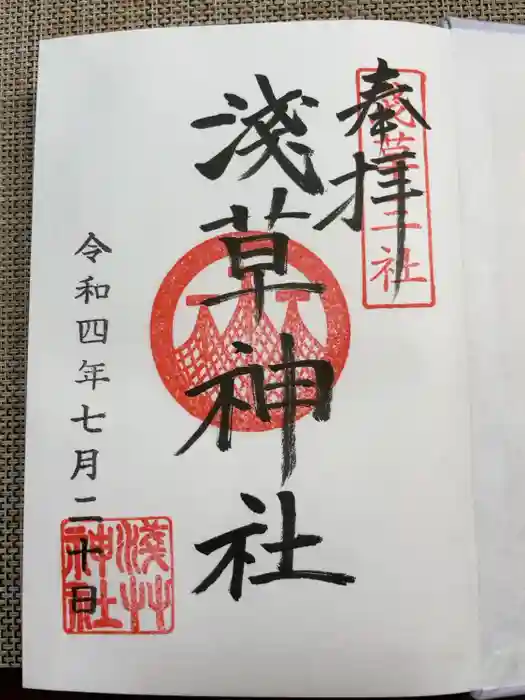 奉拝
淺草三社
淺草神社
令和四年七月二十日
淺草
神社